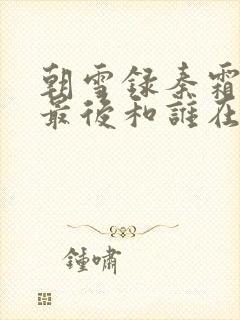 朝雪録秦霜
最後和誰在
鍾嘯